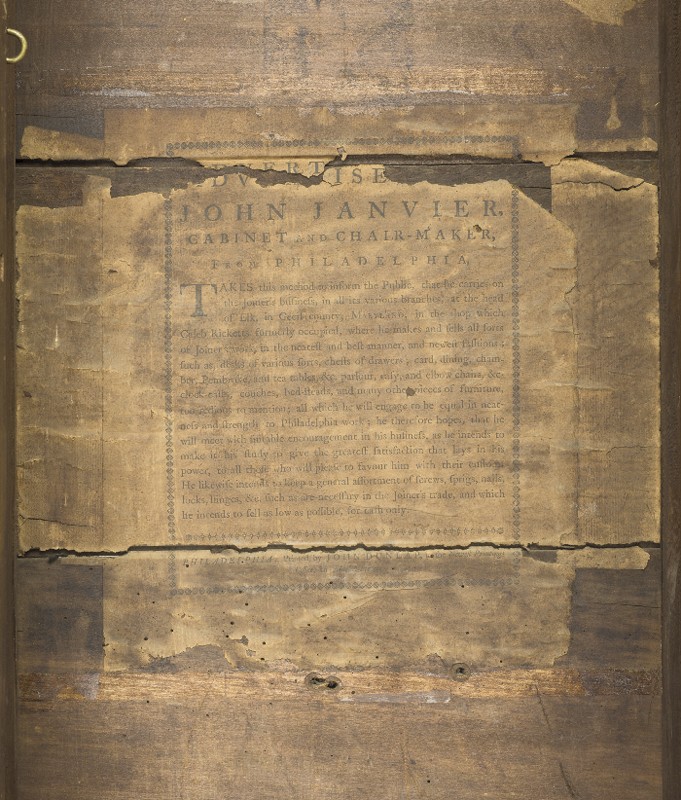 ADVERTISE
JOHN JANVIER,
CABINET AND CHAIR-MAKER,
FROM PHILADELPHIA,
TAKES this method to inform the Public, that he carries on
the Joiner's business, in all its various branches, at the head
of Elk, in Cecil-county, MARYLAND, in the shop which
Caleb Ricketts formerly occupied, where he makes and sells all sorts
of Joiner's work, in the neatest and best manner, and newest fashions;
such as desks of various sorts, chests of drawers; card, dining, cham-
ber, Pembroke, and tea tables, &c. parlour, easy, and elbow chairs, &c.
clock-cases, couches, bed-steads, and many other pieces of furniture,
too tedious to mention; all which he will engage to be equal in neat-
ness and strength to Philadelphia work; he therefore hopes, that he
will meet with suitable encouragement in his business, as he intends to
make it his study to give the greatest satisfaction that lays in his
power, to all those who will please to favour him with their custom.
He likewise intends to keep a general assortment of screws, sprigs, nails,
locks, hinges, &c. such as are necessary in the Joiner's trade, and which
he intends to sell as low as possible, for cash only.
PHILADELPHIA